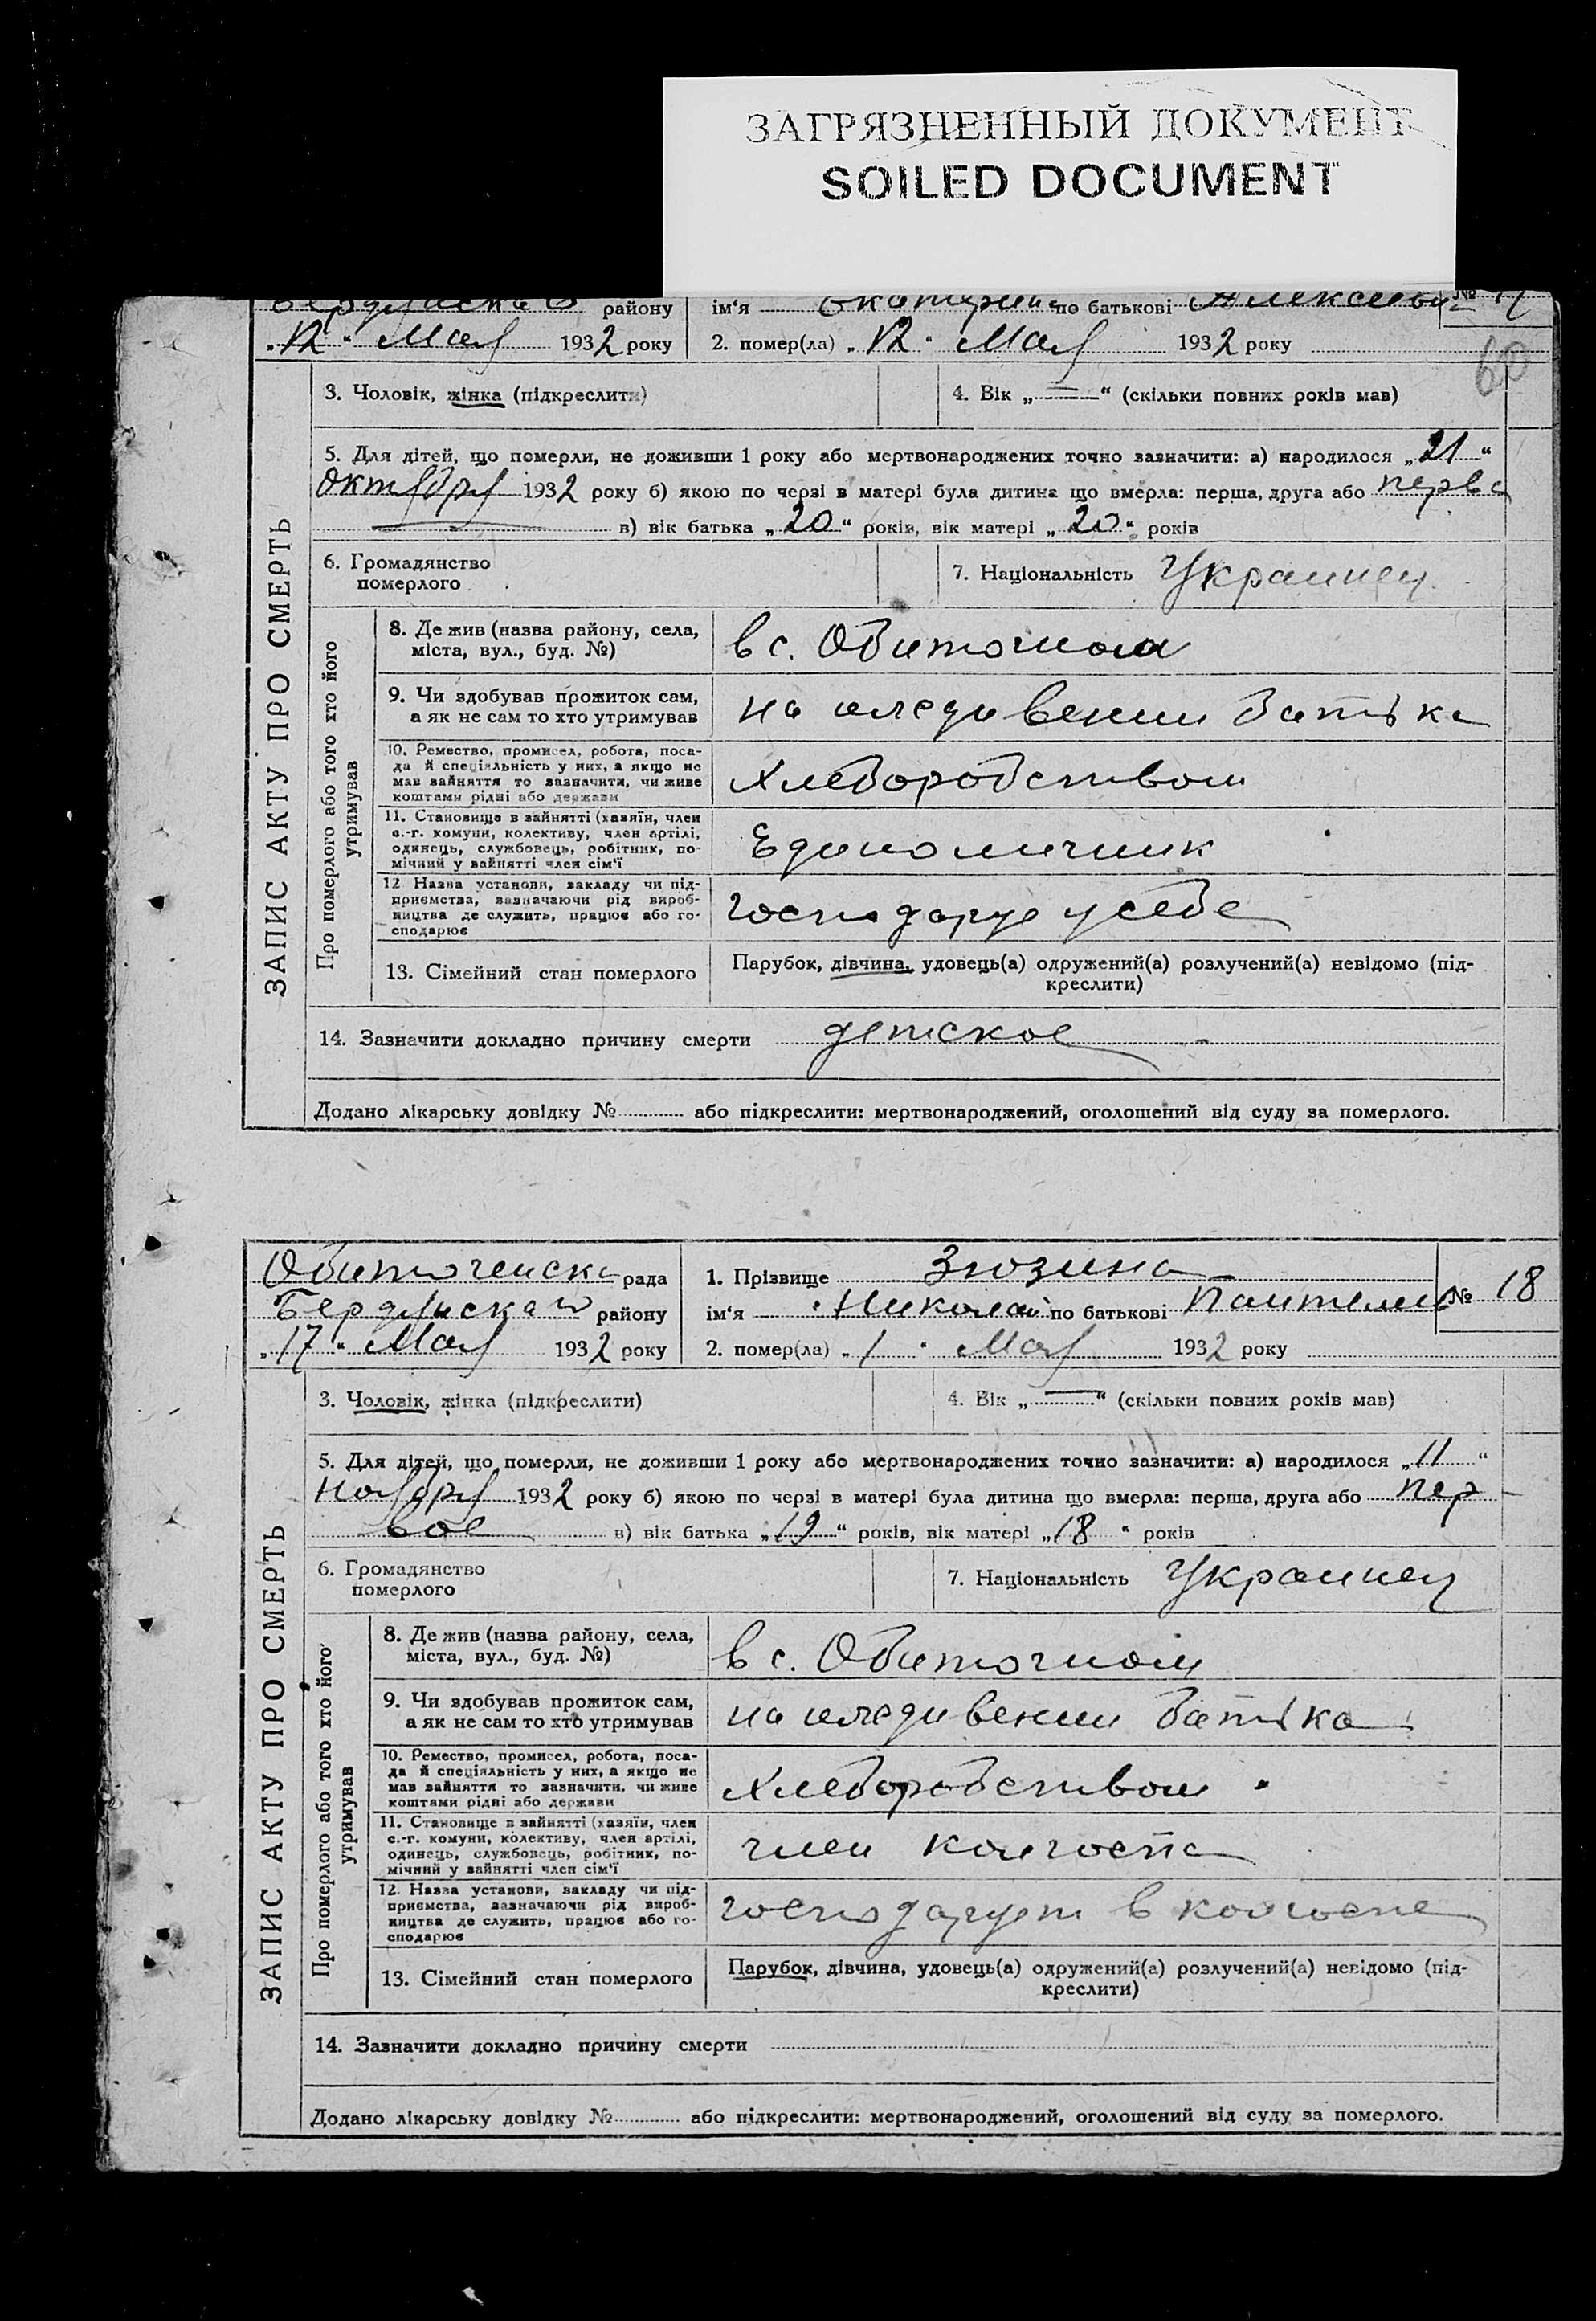 ЗАГРЯЗНЕННЫЙ ДОКУМЕНТ
SOILED DOCUMENT
району ім'я Екатерина по батькові №
„12" Мая 1932 року 2. помер(ла) „12" Мая 1932 року
60
3. Чоловік, жінка (підкреслити) 4. Вік „—" (скільки повних років мав)
5. Для дітей, що померли, не доживши 1 року або мертвонароджених точно зазначити: а) народилося „21"
Октября 1932 року б) якою по черзі в матері була дитина що вмерла: перша, друга або перва
в) вік батька „20" років, вік матері „20" років
6. Громадянство
померлого
7. Національність Украинец
ЗАПИС АКТУ ПРО СМЕРТЬ
Про померлого або того хто його
утримував
8. Де жив (назва району, села,
міста, вул., буд. №)
в с. Обиточном
9. Чи здобував прожиток сам,
а як не сам то хто утримував
на иждивении батька
10. Ремество, промисел, робота, поса-
да й спеціяльність у них, а якщо не
мав зайняття то зазначити, чи живе
коштами рідні або держави
Хлеборобством
11. Становище в зайнятті (хазяїн, член
с.-г. комуни, колективу, член артілі,
одинець, службовець, робітник, по-
мічний у зайнятті член сім'ї
Единоличник
12 Назва установи, закладу чи під-
приємства, зазначаючи рід вироб-
ництва де служить, працює або го-
сподарює
господарує у себе
13. Сімейний стан померлого
Парубок, дівчина, удовець(а) одружений(а) розлучений(а) невідомо (під-
креслити)
14. Зазначити докладно причину смерти детское
Додано лікарську довідку № або підкреслити: мертвонароджений, оголошений від суду за померлого.
Обиточенска рада 1. Прізвище Зюзина
Бердянскаго району ім'я Николай по батькові Пантелеи № 18
„17" Мая 1932 року 2. помер(ла) „1" Мая 1932 року
3. Чоловік, жінка (підкреслити) 4. Вік „—" (скільки повних років мав)
5. Для дітей, що померли, не доживши 1 року або мертвонароджених точно зазначити: а) народилося „11"
Ноября 1932 року б) якою по черзі в матері була дитина що вмерла: перша, друга або пер-
вое в) вік батька „19" років, вік матері „18" років
6. Громадянство
померлого
7. Національність Украинец
ЗАПИС АКТУ ПРО СМЕРТЬ
Про померлого або того хто його
утримував
8. Де жив (назва району, села,
міста, вул., буд. №)
в с. Обиточном
9. Чи здобував прожиток сам,
а як не сам то хто утримував
на иждивении батька
10. Ремество, промисел, робота, поса-
да й спеціяльність у них, а якщо не
мав зайняття то зазначити, чи живе
коштами рідні або держави
Хлеборобством
11. Становище в зайнятті (хазяїн, член
с.-г. комуни, колективу, член артілі,
одинець, службовець, робітник, по-
мічний у зайнятті член сім'ї
член колгоспа
12. Назва установи, закладу чи під-
приємства, зазначаючи рід вироб-
ництва де служить, працює або го-
сподарює
господарует в колгоспе
13. Сімейний стан померлого
Парубок, дівчина, удовець(а) одружений(а) розлучений(а) невідомо (під-
креслити)
14. Зазначити докладно причину смерти
Додано лікарську довідку № або підкреслити: мертвонароджений, оголошений від суду за померлого.